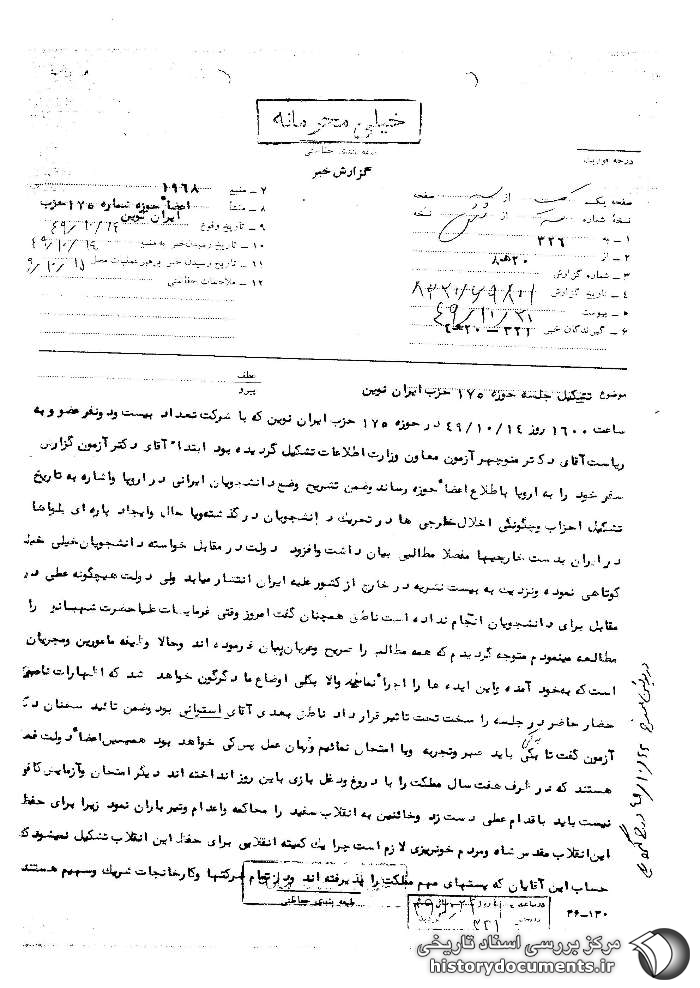 خیلی محرمانه
طبقه بندی حفاظتی
گزارش خبر
درجه فوریت
صفحه یک از سه صفحه
نسخه شماره از نسخه
۱ - به ۳۲۶
۲ - از ۲۰ ه ۸
۳ - شماره گزارش
۴ - تاریخ گزارش
۵ - پیوست
۶ - گیرندگان خبر ۳۲۱
۷ - منبع ۱۹۶۸
۸ - منشأ اعضاء حوزه شماره ۱۷۵ حزب ایران نوین
۹ - تاریخ وقوع ۴۹/۱۰/۱۴
۱۰ - تاریخ رسیدن خبر به منبع ۴۹/۱۰/۱۴
۱۱ - تاریخ رسیدن خبر به رهبر عملیات محل ۹/۱۰/۱۵
۱۲ - ملاحظات حفاظتی
عطف
پیرو
موضوع تشکیل جلسه حوزه ۱۷۵ حزب ایران نوین
ساعت ۱۶۰۰ روز ۴۹/۱۰/۱۴ در حوزه ۱۷۵ حزب ایران نوین که با شرکت تعداد بیست و دو نفر عضو و به
ریاست آقای دکتر منوچهر آزمون معاون وزارت اطلاعات تشکیل گردیده بود ابتداء آقای دکتر آزمون گزارش
سفر خود را به اروپا باطلاع اعضاء حوزه رساند و ضمن تشریح وضع دانشجویان ایرانی در اروپا و اشاره به تاریخ
تشکیل احزاب و چگونگی اخلال خارجی ها در تحریک دانشجویان در گذشته و یا حال و ایجاد پاره ای بلواها
در ایران بدست خارجیها مفصلا مطالبی بیان داشت و افزود دولت در مقابل خواسته دانشجویان خیلی
کوتاهی نموده و نزدیک به بیست نشریه در خارج از کشور علیه ایران انتشار میابد ولی دولت هیچگونه عملی در
مقابل برای دانشجویان انجام نداده است ناطق همچنان گفت امروز وقتی فرمایشات علیاحضرت شهبانو را
مطالعه مینمودم متوجه گردیدم که همه مطالب را صریح و عریان بیان فرموده اند و حالا وظیفه مامورین و مجریان
است که بخود آمده و این ایده ها را اجراء نمایند والا بکلی اوضاع ما دگرگون خواهد شد که اظهارات
حضار حاضر در جلسه را سخت تحت تاثیر قرار داد ناطق بعدی آقای استوانی بود و ضمن تائید سخنان
آزمون گفت تا بکی باید صبر و تجربه و یا امتحان نمائیم و زمان عمل پس کی خواهد بود همین اعضاء دولت
هستند که در ظرف هفت سال مملکت را با دروغ و دغل بازی باین روز انداخته اند دیگر امتحان و آزمایش
نیست باید باقدام عملی دست زد و خائنین به انقلاب سفید را محاکمه و اعدام و تیر باران نمود زیرا برای حفظ
این انقلاب مقدس شاه و مردم خونریزی لازم است چرا یک کمیته انقلابی برای حفظ این انقلاب تشکیل نمیشود
حساب این آقایان که پستهای مهم مملکت را پذیرفته اند و در تمام شرکتها و کارخانجات شریک و سهیم هستند
طبقه بندی حفاظتی
۳۲۱
۳۶-۱۳۰
مرکز بررسی اسناد تاریخی
historydocuments.ir